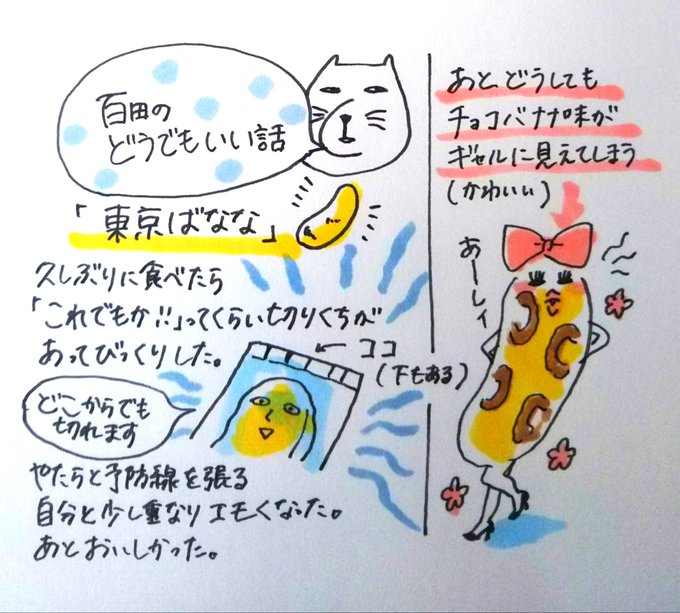 百田の
どうでもいい話
「東京ばなな」
久しぶりに食べたら
「これでもか!!」ってくらい切りくちが
あってびっくりした。
← ココ
(下もある)
どこからでも
切れます
やたらと予防線を張る
自分と少し重なりエモくなった。
あとおいしかった。
あとどうしても
チョコバナナ味が
ギャルに見えてしまう
(かわいい)
あーしィ